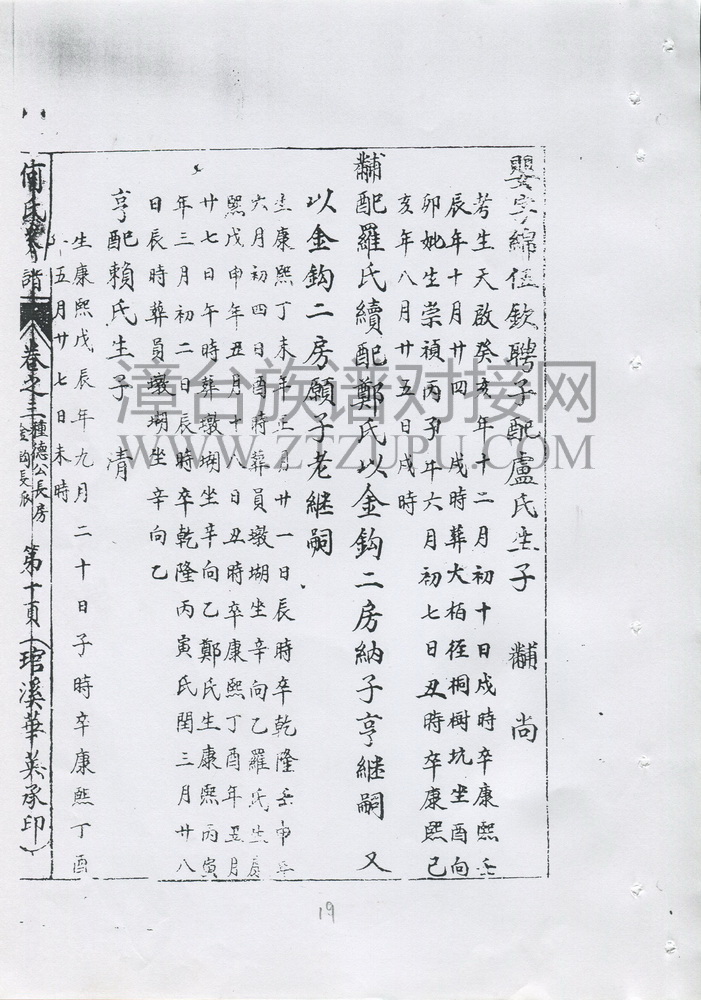 嬰字綿伍欽聘子配盧氏生子 黼 尚
考生天啟癸亥年十二月初十日戌時卒康熙壬
辰年十月廿四 戌時葬大栢徑桐樹坑坐酉向
卯妣生崇禎丙子年六月初七日丑時卒康熙己
亥年八月廿五日戌時
黼配羅氏續配鄭氏以金鈎二房納子亨繼嗣 又
以金鈎二房願子老繼嗣
生康熙丁未年正月廿一日辰時卒乾隆壬申年
六月初四日酉時葬員墩堋坐辛向乙羅氏生康
熙戊申年五月十八日丑時卒康熙丁酉年五月
廿七日午時葬墩堋坐辛向乙鄭氏生康熙丙寅
年三月初二日辰時卒乾隆丙寅氏閏三月廿八
日辰時葬員墩堋坐辛向乙
亨配賴氏生子 清
生康熙戊辰年九月二十日子時卒康熙丁酉
五月廿七日未時
何氏家譜 卷之三 種德公長房 金鈎長派 第十頁(琯溪華英承印)
漳台族谱对接网
WWW.ZTZUPU.COM
19